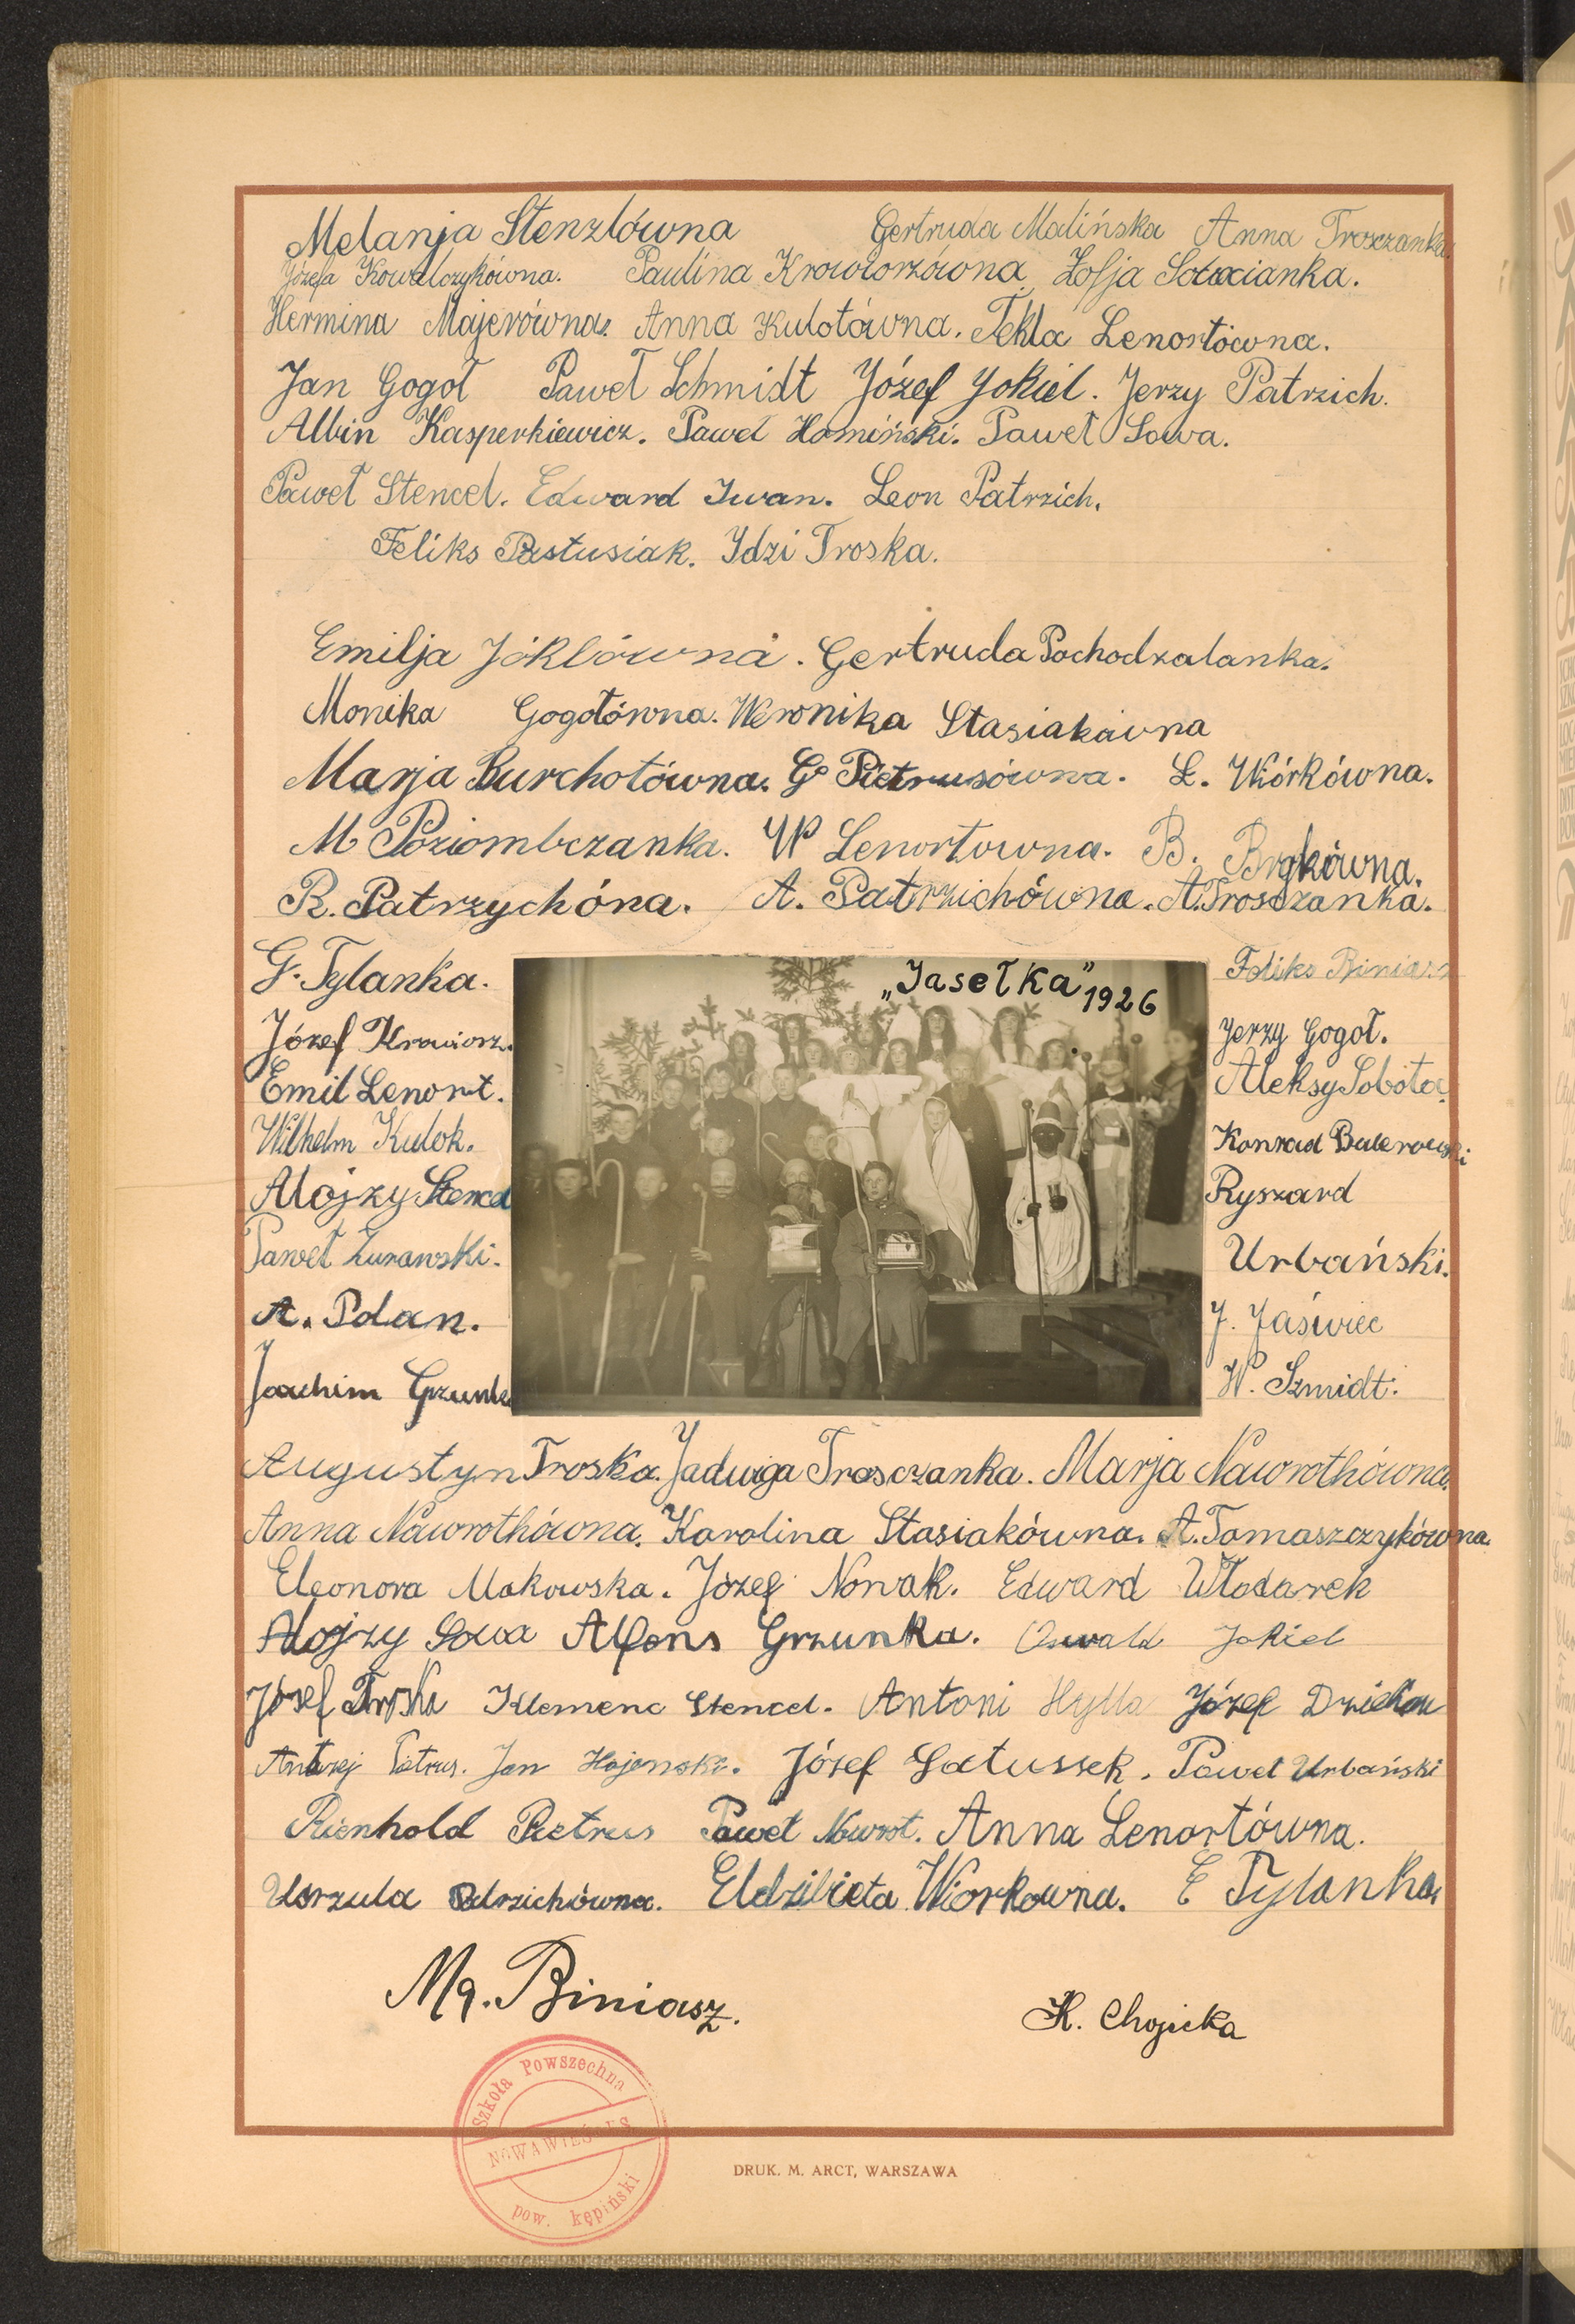 Melanja Stenzlówna Gertruda Malińska Anna Troszczanka
Józefa Kowalczykówna. Paulina Krowiorzówna Zofja
Hermina Majerówna. Anna Kulotówna. Tekla Lenortówna.
Jan Gogoł Paweł Schmidt Józef Jokiel. Jerzy Patrzich.
Albin Kasperkiewicz. Paweł Homiński. Paweł Sowa.
Paweł Stencel. Edward Iwan. Leon Patrzich.
Feliks Pastusiak. Idzi Troska.
Emilja Jóklówna. Gertruda Pochodzalanka.
Monika Gogołówna. Weronika Stasiakówna
Marja Burchotówna. G. Pietrusówna. Ł. Wiórkówna.
M Poziombczanka. W Lenortowna. B. Brykówna.
R. Patrzychóna. A. Patrzichówna. A. Trosczanka.
G. Tylanka.
Józef Krowiorz.
Emil Lenort.
Wilhelm Kulok.
Alojzy Stencel
Paweł Żurawski.
A. Polan.
Joachim
„Jasełka” 1926
Feliks Biniasz
Jerzy Gogoł.
Aleksy Sobota
Konrad Balerowski
Ryszard
Urbański.
J. Jaświec
W. Szmidt.
Augustyn Troska. Jadwiga Trosczanka. Marja Nawrothówna.
Anna Nawrothówna. Karolina Stasiakówna. A. Tomaszczykówna.
Eleonora Makowska. Józef Nowak. Edward Włodarek
Alojzy Sowa Alfons Grzunka. Oswald Jokiel
Józef Troska Klemenc Stencel. Antoni Hylla Józef
Andrzej Jan Józef Latussek. Paweł Urbański
Rienhold Pietrus Paweł Nowrot. Anna Lenortówna.
Urszula Patrzichówna. Eldzibieta Wiorkowna. E Tylanka
Ma. Biniasz.
K. Chojicka
Szkoła Powszechna
NOWAWIEŚ
pow. kępiński
DRUK. M. ARCT, WARSZAWA